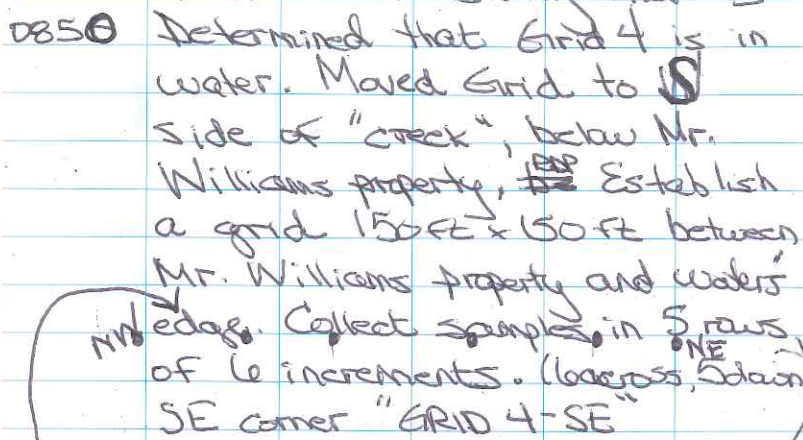 0850 Determined that Grid 4 is in
water. Moved Grid to S
side of "creek", below Mr.
Williams property, Establish
a grid 150ft x 150 ft between
Mr. Williams property and water's
NW edge. Collect samples in 5 rows
NE
of 6 increments. (6across, 5down
SE corner "GRID 4-SE"